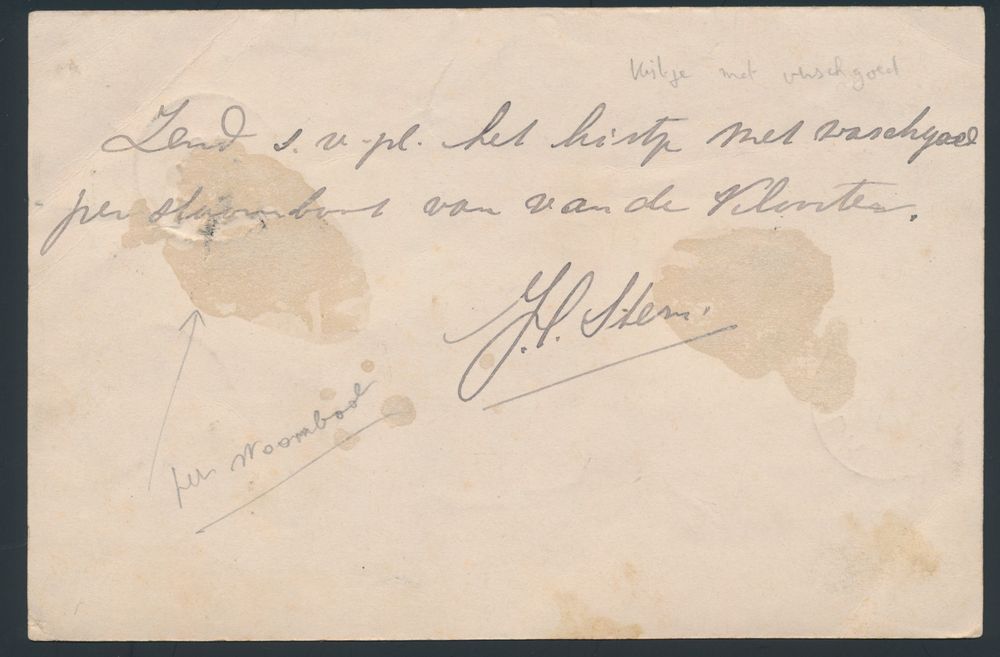 kistje met waschgoed
Zend s.v.pl. het kistje met waschgoed
per stoomboot van van de Klooster.
J.H. Stem.
per stoomboot